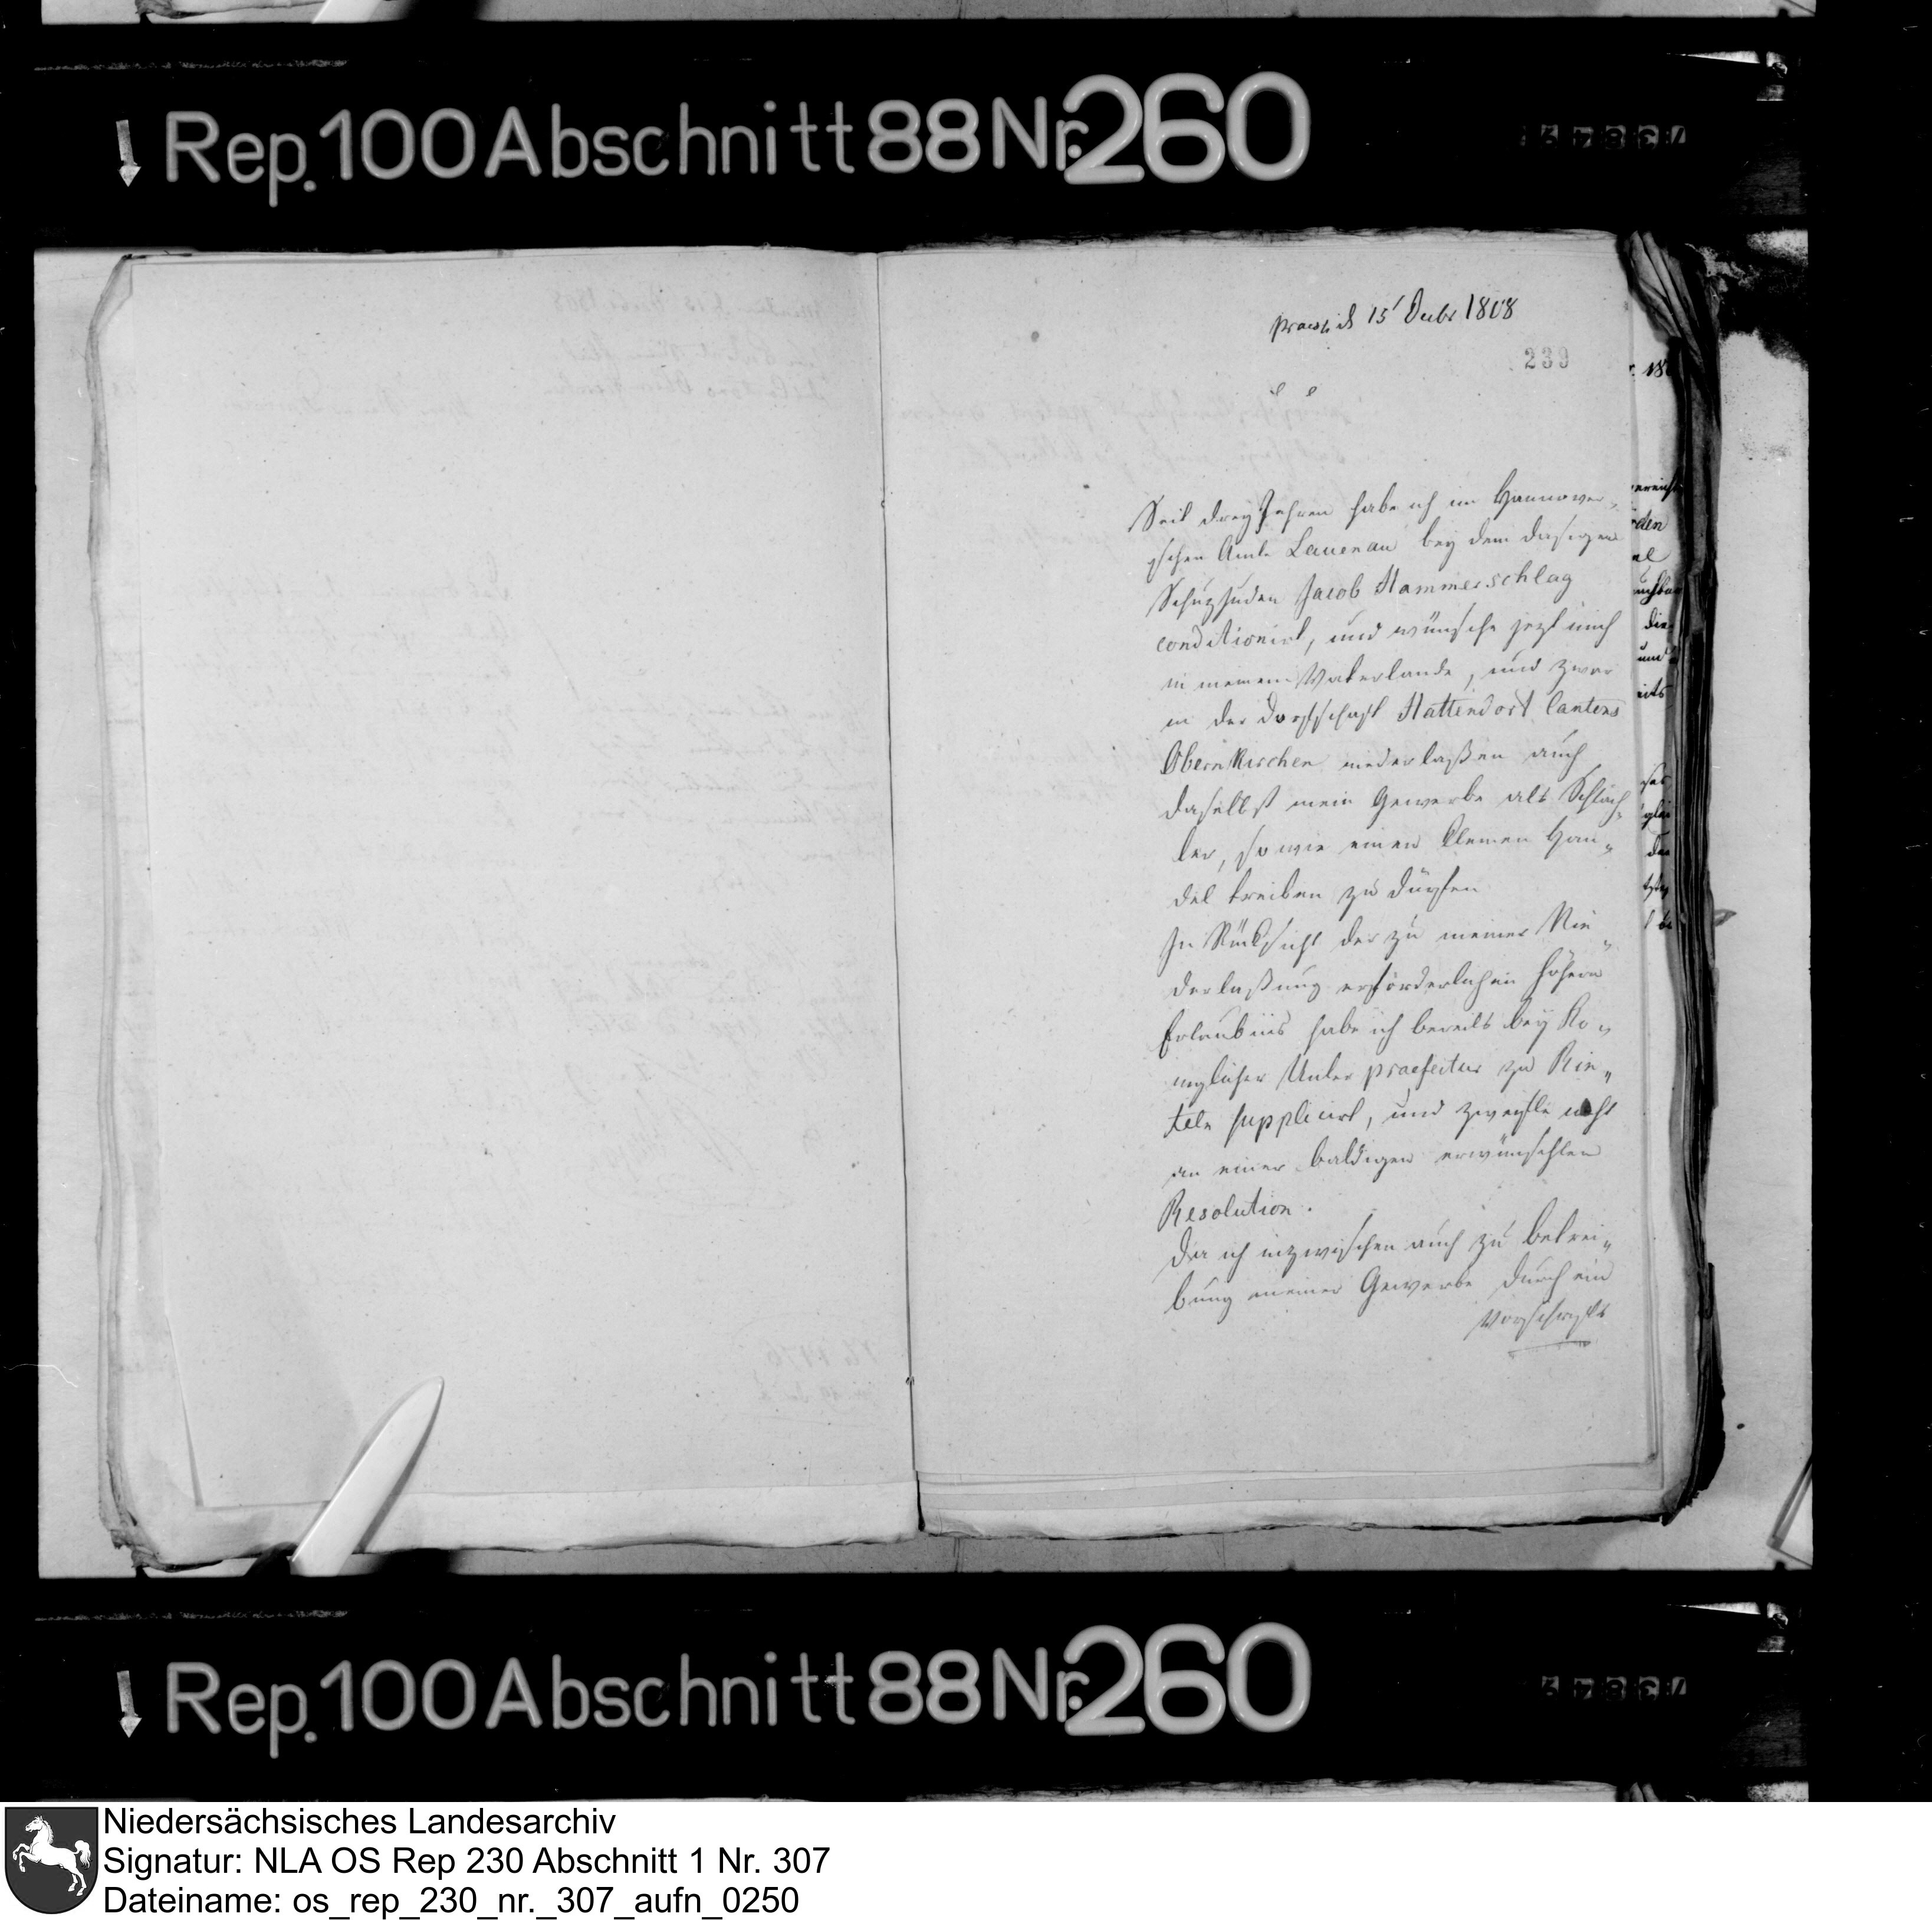 Rep. 100 Abschnitt 88 Nr. 260
praes. d. 15 Decbr 1808
239
Seit drey Jahren habe ich im Hannöver„
schen Amte Lauenau bey dem dasigen
Schuzjuden Jacob Hammerschlag
conditionirt, und wünsche jezt mich
in meinem Vaterlande, und zwar
in der Dorfschaft Hattendorf Cantons
Obernkirchen niederlaßen auch
daselbst mein Gewerbe als Schläch„
ter, so wie einen kleinen Han„
del treiben zu dürfen
In Rücksicht der zu meiner Nie„
derlaßung erforderlichen höhern
Erlaubniß habe ich bereits bey Kö„
niglicher Unter praefectur zu Rin„
teln supplicirt, und zweifle nicht
an einer baldigen erwünschten
Resolution.
Da ich inzwischen auch zu Betrei„
bung meiner Gewerbe durch ein
Vorschrifts
Rep. 100 Abschnitt 88 Nr. 260
Niedersächsisches Landesarchiv
Signatur: NLA OS Rep 230 Abschnitt 1 Nr. 307
Dateiname: os_rep_230_nr._307_aufn_0250